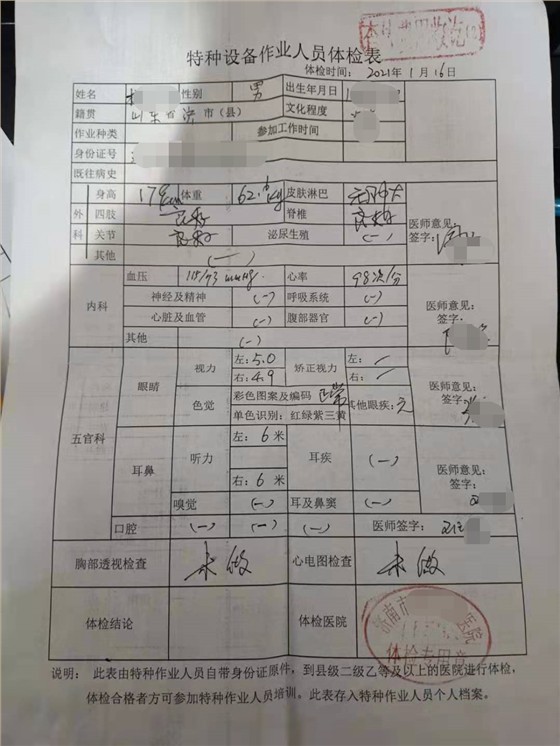 特种设备作业人员体检表
体检时间: 2021年1月16日
姓名 性别 男 出生年月日
籍贯 山东省济 市(县) 文化程度
作业种类 参加工作时间
身份证号
既往病史
外科 身高 17 cm 体重 62. kg 皮肤淋巴
四肢 良好 脊椎 良好
关节 良好 泌尿生殖 (—)
其他 (—)
医师意见:
签字:
内科 血压 /93 mmHg 心率 98次/分
神经及精神 (—) 呼吸系统 (—)
心脏及血管 (—) 腹部器官 (—)
其他 (—)
医师意见:
签字:
五官科 眼睛 视力 左:5.0 矫正视力 左: /
右:4.9 右: /
色觉 彩色图案及编码 正常 其他眼疾:无
单色识别:红绿紫三黄
医师意见:
签字:
耳鼻 听力 左: 6 米 耳疾 (—)
右: 6 米
嗅觉 (—) 耳及鼻窦 (—)
医师意见:
签字:
口腔 (—) (—) (—) 医师签字:
胸部透视检查 未做 心电图检查 未做
体检结论 体检医院
济南市 医院
体检专用章
说明: 此表由特种作业人员自带身份证原件,到县级二级乙等及以上的医院进行体检,
体检合格者方可参加特种作业人员培训。此表存入特种作业人员个人档案。